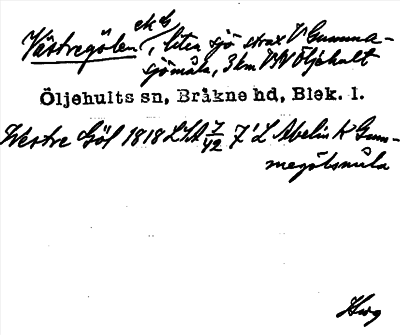 Västregölen ek b, liten sjö strax V Gumma-
sjömåla, 3 km VNV Öljehult
Öljehults sn, Bräkne hd, Blek. l.
Westre Göl 1818 LSA 7/42 7'L Abelin K Gum-
megölsmåla
Hwg